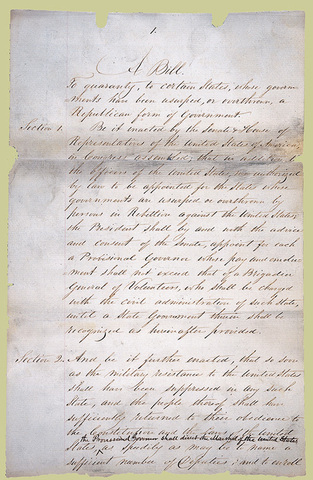 1.
A Bill
To guaranty, to certain States, whose govern-
ments have been usurped, or overthrown, a
Republican form of Government.
Section 1. Be it enacted by the Senate & House of
Representatives of the United States of America
in Congress assembled, that in
the officers of the United States,
by law to be appointed for the States whose
governments are usurped or overthrown by
persons in Rebellion against the United States
the President shall by and with the advice
and consent of the Senate, appoint for each
a Provisional Governor whose pay and emolu-
ment shall not exceed that of a Brigadier
General of Volunteers, who shall be charged
with the civil administration of such State,
until a State Government therein shall be
recognized as hereinafter provided.
Section 2. And be it further enacted, that so soon
as the military resistance to the United States
shall have been suppressed in any such
State, and the people thereof shall have
sufficiently returned to their obedience to
the Constitution and the laws of the United
the Provisional Governor shall direct the Marshal of the United States
States, as speedily as may be to name a
sufficient number of Deputies, and to enroll